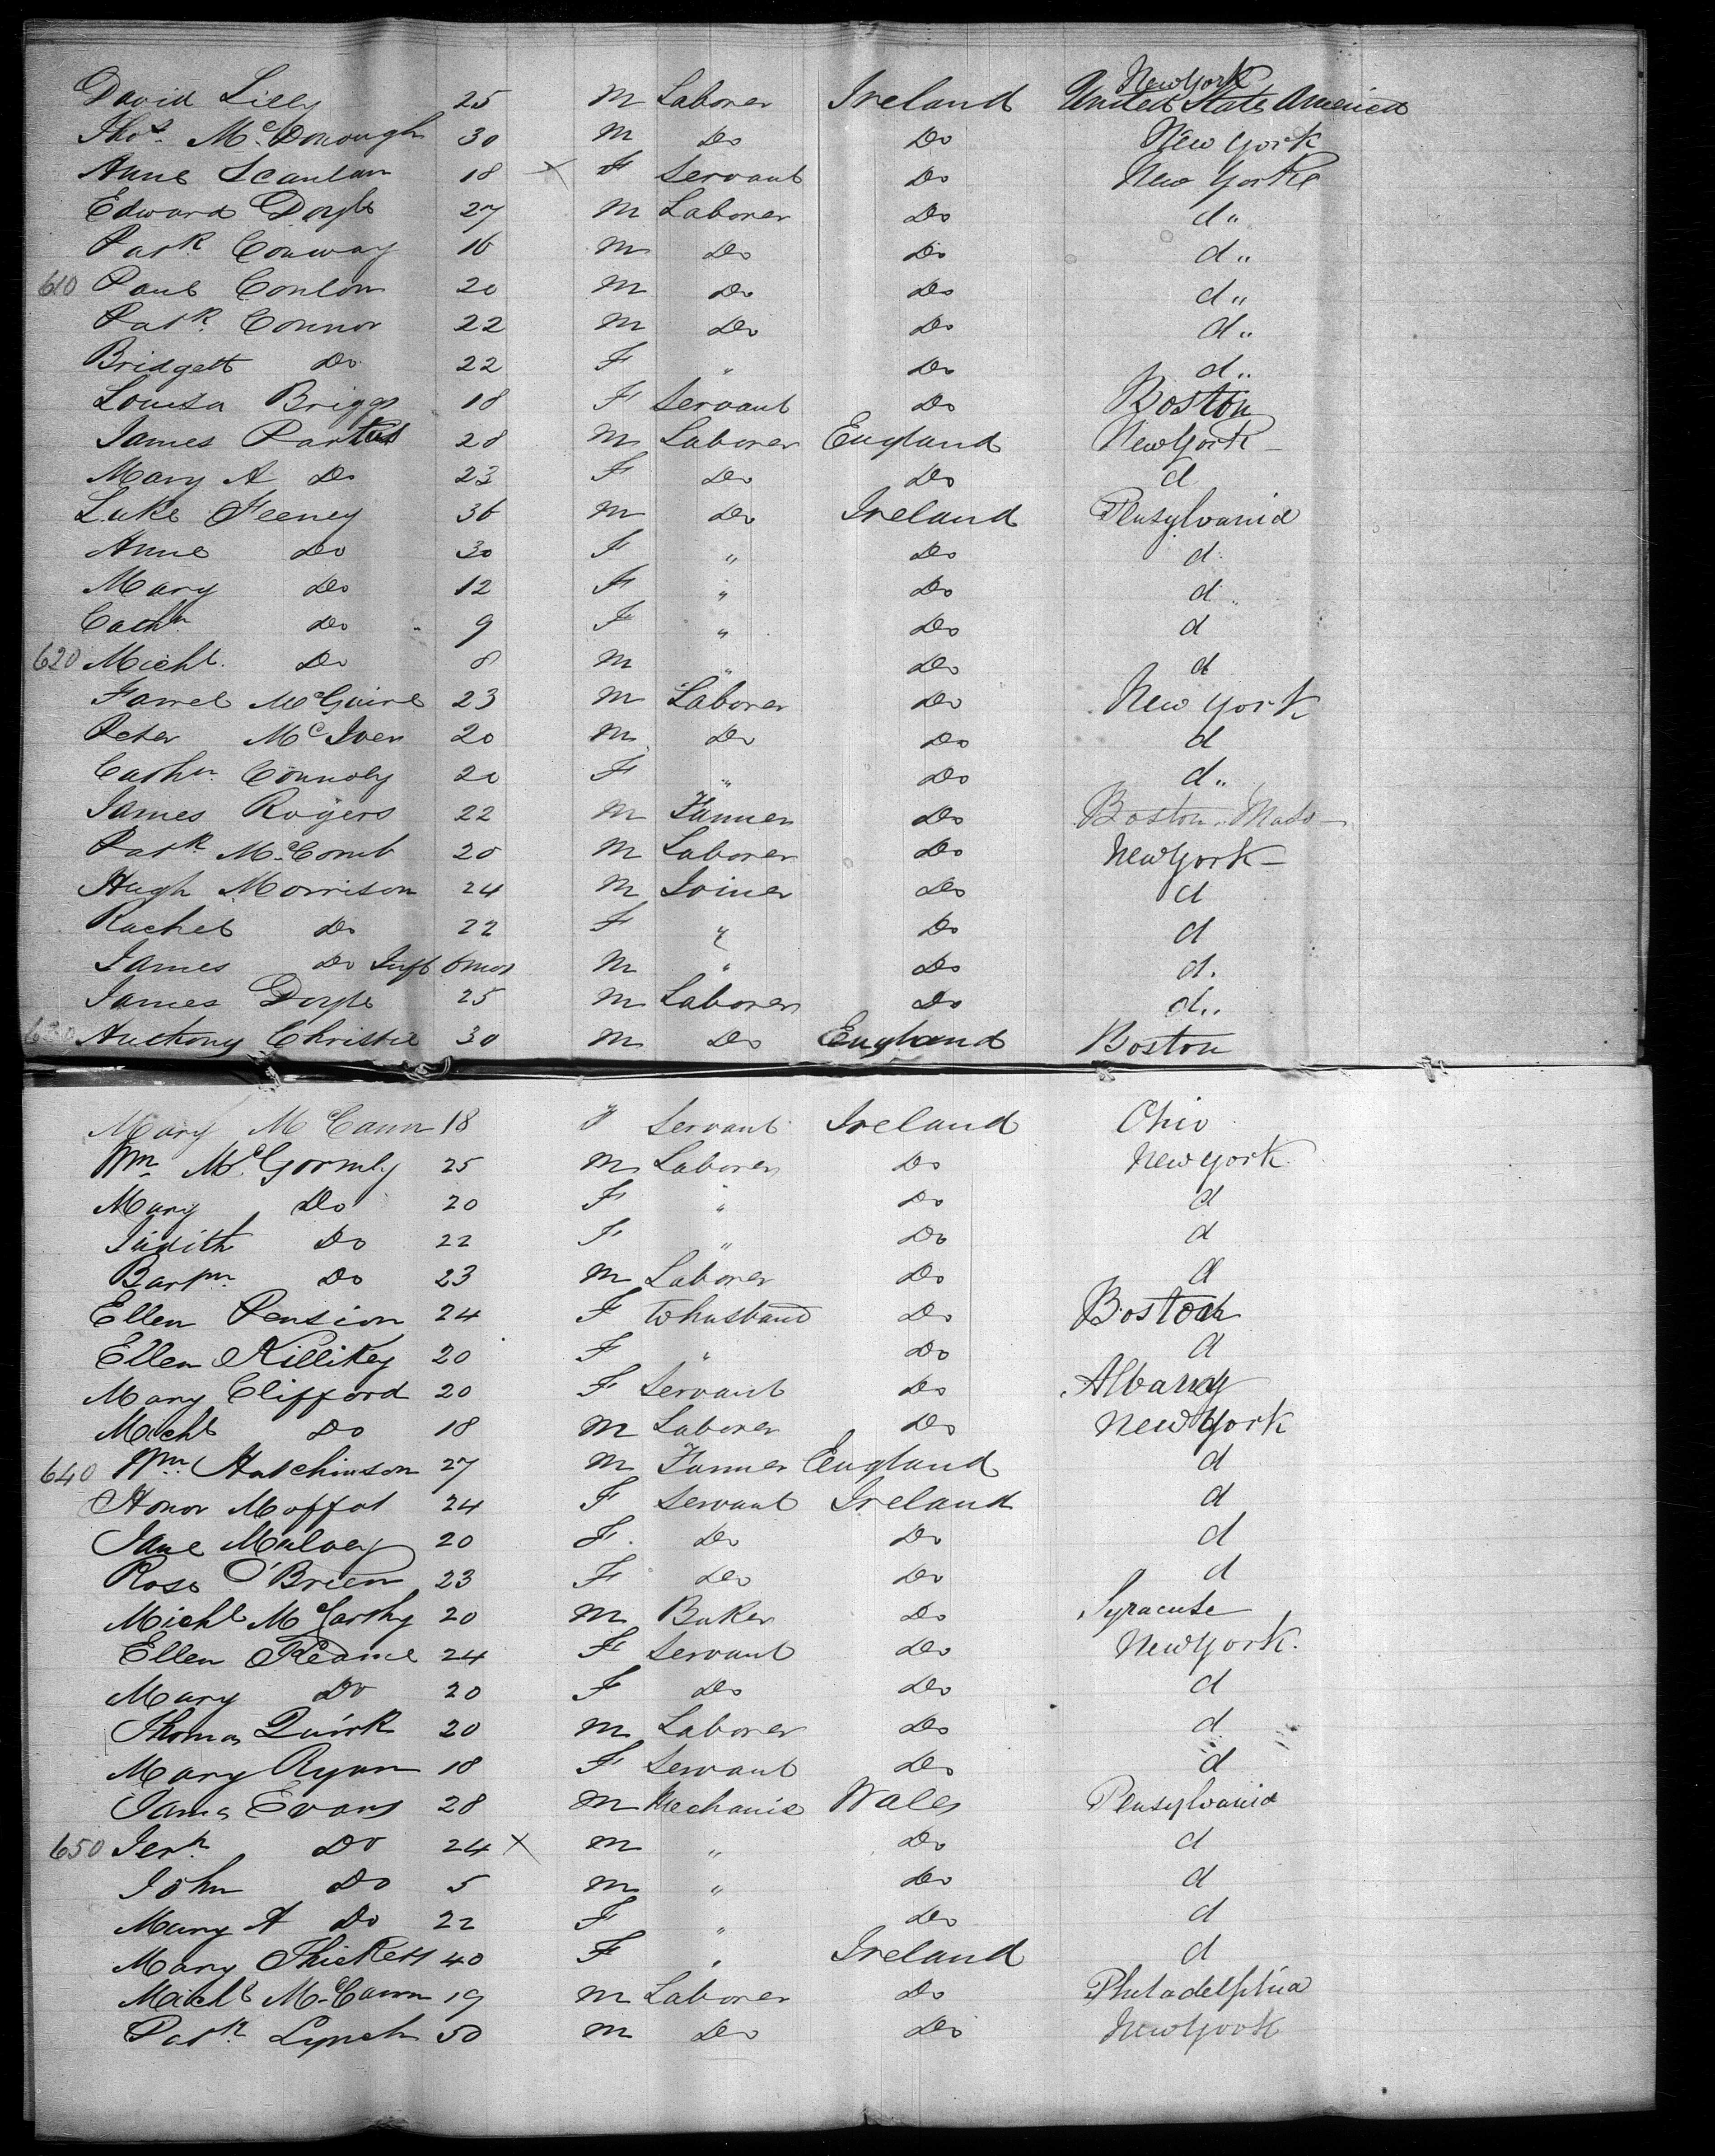 New York
David Lilly 25 M Laborer Ireland United State America
Thos. McDonough 30 M Do Do New York
Anne Scanlan 18 X F Servant Do New York
Edward Doyle 27 M Laborer Do d"
Patk. Conway 16 M Do Do d"
610 Paul Conlon 20 M Do Do d"
Patk. Connor 22 M Do Do d"
Bridgett Do 22 F " Do d"
Louisa Briggs 18 F Servant Do Boston
James 28 M Laborer England New York
Mary A Do 23 F Do Do d
Luke Feeney 36 M Do Ireland Pensylvania
Anne Do 30 F " Do d
Mary Do 12 F " Do d
Cathn. Do 9 F " Do d
620 Michl. Do 8 M " Do d
Farrel McGuire 23 M Laborer Do New York
Peter McIver 20 M Do Do d
Cathn. Connoly 20 F " Do d"
James Rogers 22 M Farmer Do Boston
Patk. McComb 20 M Laborer Do New York
Hugh Morrison 24 M Joiner Do d
Rachel Do 22 F " Do d
James Do Inft 6 mos M " Do d.
James Doyle 25 M Laborer Do d"
630 Anthony Christie 30 M Do England Boston
Mary McCann 18 F Servant Ireland Ohio
Wm McGormly 25 M Laborer Do New York
Mary Do 20 F " Do d
Judith Do 22 F " Do d
Do 23 M Laborer Do d
Ellen Pension 24 F to husband Do Boston
Ellen Killikey 20 F " Do d
Mary Clifford 20 F Servant Do Albany
Michl Do 18 M Laborer Do New York
640 Wm. Hutchinson 27 M Farmer England d
Honor Moffat 24 F Servant Ireland d
Jane Mulvey 20 F. Do Do d
Rose O'Brien 23 F Do Do d
Michl McCarthy 20 M Baker Do Syracuse
Ellen Keane 24 F Servant Do New York.
Mary Do 20 F Do Do d
Thomas Quirk 20 M Laborer Do d
Mary Ryan 18 F Servant Do d
James Evans 28 M Mechanic Wales Pensylvania
650 Jerh. Do 24 X M " Do d
John Do 5 M " Do d
Mary A Do 22 F " Do d
Mary Thickett 40 F " Ireland d
Michl McCann 19 M Laborer Do Philadelphia
Patk. Lynch 50 M Do Do New York